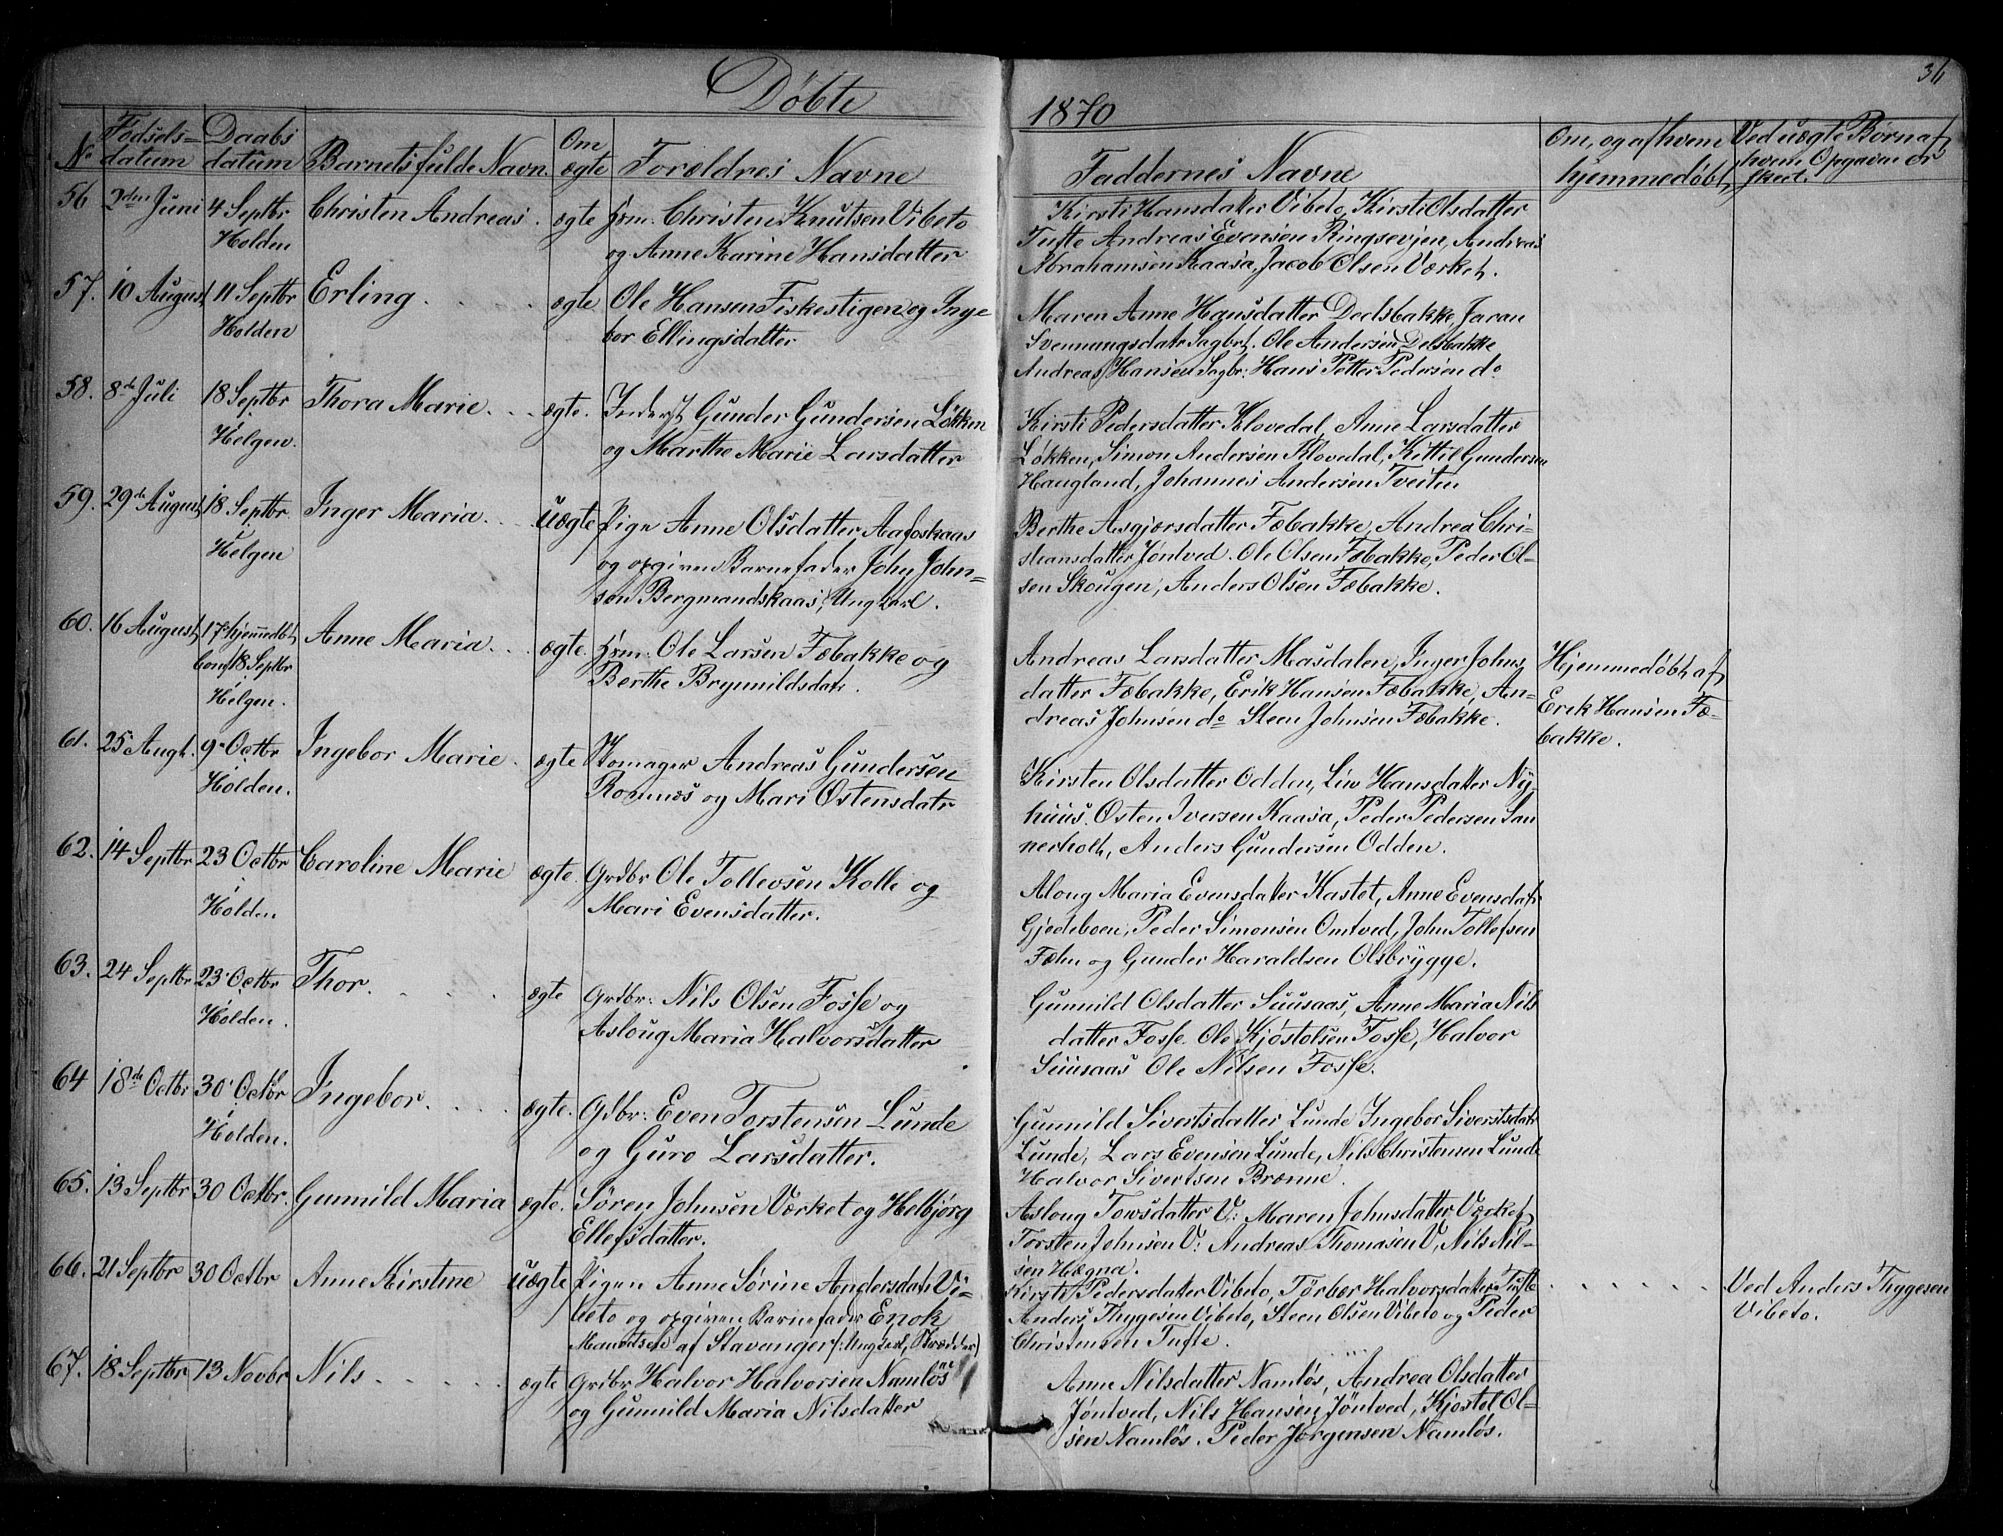 36
Døbte
1870
No
Fødsels-
datum
Daabs
datum
Barnets fulde Navn
Om
ægte
Forældres Navne
Faddernes Navne
Om, og af hvem
hjemmedøbt,
Ved uægte Børn af
hvem Opgaven er
skeet.
56 2den Juni 4 Septbr Christen Andreas. ægte Christen Knutsen Vibeto
Holden og Anne Karine Hansdatter
Kirsti Hansdatter Vibeto, Kirsti Olsdatter
Tufte Andreas Evensen Ringsevjen, Andreas
Abrahamsen Kaasa, Jacob Olsen Værket.
57. 10 August 11 Septbr Erling. ægte Ole Hansen Fiskestigen og Inge
Holden bor Ellingsdatter
Maren Anne Hansdatter Dedsbakke, Javan
Svennungsdatr Sagbr. Ole Andersen Delsbakke
Andreas Hansen Sagbr: Hans Petter Pedersen do
58. 8de Juli 18 Septbr Thora Marie. ægte. Inderst Gunder Gundersen Løkken
Helgen. og Marthe Marie Larsdatter
Kirsti Pedersdatter Klovedal, Anne Larsdatter
Løkken, Simon Andersen Klovedal, Kittil Gundersen
Haugland, Johannes Andersen Tveiten
59. 29de August 18 Septbr. Inger Maria. uægte Pige Anne Olsdatter Aafoskaas
Helgen og opgiven Barnefader John John-
sen Bergmandskaas, Ungkarl.
Berthe Asgjersdatter Fæbakke, Andrea Chri-
stiansdatter Jøntved. Ole Olsen Fæbakke, Peder Ol-
sen Skougen, Anders Olsen Fæbakke.
60. 16 August 17 hjemmedbt Anne Maria. ægte. Ole Larsen Fæbakke og
Conf 18 Septbr Berthe Brynnildsdatr.
Helgen.
Andreas Larsdatter Masdalen, Inger Johns
datter Fæbakke, Erik Hansen Fæbakke, An-
dreas Johnsen do Steen Johnsen Fæbakke.
Hjemmedøbt af
Erik Hansen Fæ-
bakke.
61. 25 Augt. 9 Octbr Ingebor Marie. ægte Skomager Andreas Gundersen
Holden. Romnes og Mari Ostensdatr
Kirsten Olsdatter Odden, Liv Hansdatter Ny-
huus. Osten Iversen Kaasa, Peder Pedersen San
nerholt, Anders Gundersen Odden.
62. 14 Septbr 23 Octbr Caroline Marie ægte. Grdbr Ole Tollevsen Kolle og
Holden Mari Evensdatter.
Aloug Maria Evensdatter Kastet, Anne Evensdatr
Gjedeboen, Peder Simonsen Omtved, John Tollefsen
Fæhn og Gunder Haraldsen Olsbrygge.
63. 24 Septbr 23 Octbr Thor. ægte Grdbr: Nils Olsen Fosse og
Holden. Asloug Maria Halvorsdatter
Gunnild Olsdatter Suusaas, Anne Maria Nils
datter Fosse. Ole Kjøstolsen Fosse, Halvor
Suusaas Ole Nilsen Fosse.
64 18de Octbr 30 Octbr Ingebor. ægte. Gdbr: Even Torstensen Lunde
Holden. og Guro Larsdatter.
Gunnild Sivertsdatter Lunde Ingebor Siverstsdatr
Lunde, Lars Evensen Lunde, Nils Christensen Lunde
Halvor Sivertsen Brænne.
65. 13 Septbr 30 Octbr. Gunnild Maria ægte. Søren Johnsen Værket og Helbjørg
Ellefsdatter.
Asloug Towsdatter V: Maren Johnsdatter Værket,
Torsten Johnsen V: Andreas Thomasen V, Nils Nil-
sen Hægna.
66. 21 Septbr 30 Octbr Anne Kirstine uægte Pigen Anne Sørine Andersdatr Vi-
beto og opgiven Barnefader Enok
af Stavanger (: Ungkarl, Skrædder)
Kirsti Pedersdatter Vibeto, Tørber Halvorsdatter Tufte
Anders Thygesen Vibeto, Steen Olsen Vibeto og Peder
Christensen Tufte.
Ved Anders Thygesen
Vibeto.
67. 18 Septbr 13 Novbr Nils. ægte Grdbr Halvor Halvorsen Namløs
og Gunnild Maria Nilsdatter
Anne Nilsdatter Namløs, Andrea Olsdatter
Jøntved, Nils Hansen Jøntved, Kjostel Ol-
sen Namløs. Peder Jørgensen Namløs.